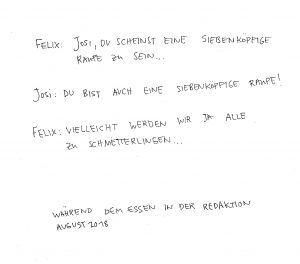 FELIX: JOSI, DU SCHEINST EINE SIEBENKÖPFIGE
RAUPE ZU SEIN...
JOSI: DU BIST AUCH EINE SIEBENKÖPFIGE RAUPE!
FELIX: VIELLEICHT WERDEN WIR JA ALLE
ZU SCHMETTERLINGEN...
WÄHREND DEM ESSEN IN DER REDAKTION
AUGUST 2018